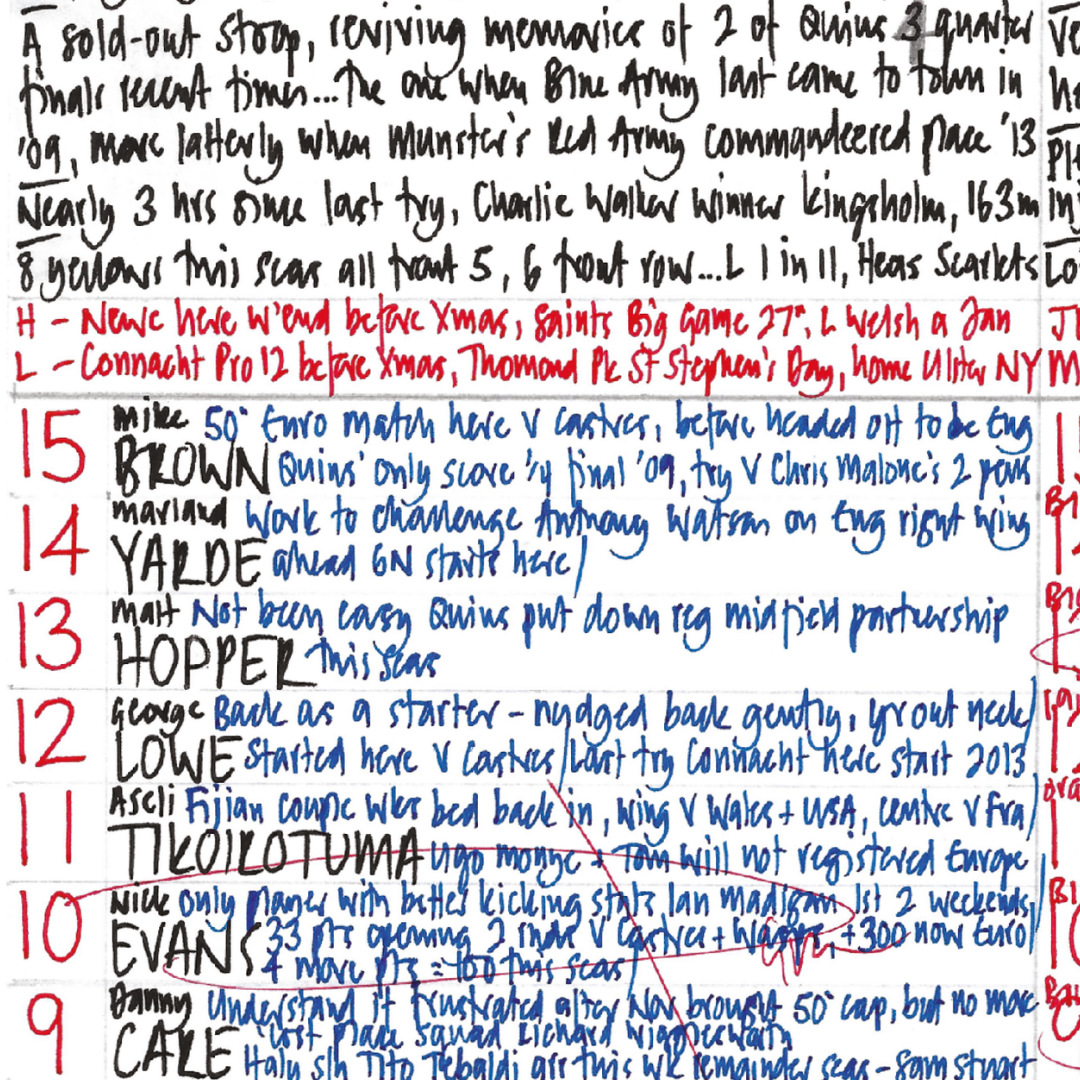 A sold-out Stoop, reviving memories of 2 of Quins 3 quarter
finals recent times...The one when Blue Army last came to town in
'09, more latterly when Munster's Red Army commandeered place '13
Nearly 3 hrs since last try, Charlie Walker winner Kingsholm, 163m
8 yellows this seas all front 5, 6 front row...L 1 in 11, Heas Scarlets
H - Newc here w'end before Xmas, Saints Big Game 27th, L Welsh a Jan
L - Connacht Pro12 before Xmas, Thomond Pk St Stephen's Day, home Ulster NY
15 Mike 50th Euro match here v Castres, before headed off to be Eng
BROWN Quins' only score 1/4 final '09, try v Chris Malone's 2 pens
14 Marland Work to challenge Anthony Watson on Eng right wing
YARDE ahead 6N starts here/
13 Matt Not been easy Quins put down reg midfield partnership
HOPPER this seas
12 George Back as a starter - nudged back gently, gr out neck/
LOWE started here v Castres/Last try Connacht here start 2013
11 Aseli Fijian couple wks bed back in, wing v Wales + USA, centre v Fra/
TIKOIROTUMA Ugo Monye + Tom Will not registered Europe
10 Nick only player with better kicking stats Ian Madigan 1st 2 weekends/
EVANS 33 pts opening 2 v Castres + Wasps, +300 now Euro/
4 more pts = 100 this seas/
9 Danny Understand it frustrated after Nov brought 50th cap, but no more
CARE lost place squad Richard Wigglesworth
Italy s/h Tito Tebaldi arr this wk remainder seas - Sam Stuart